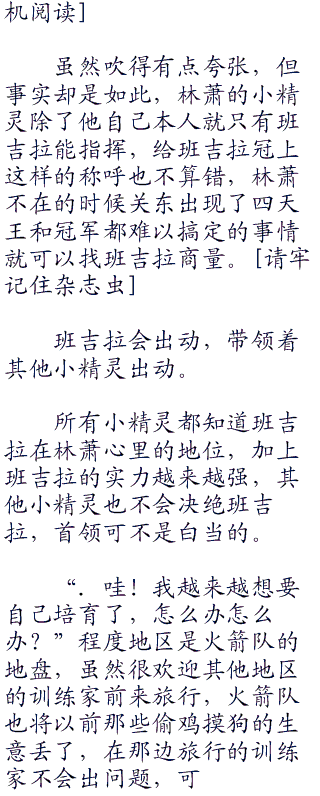 机阅读]
虽然吹得有点夸张，但
事实却是如此，林萧的小精
灵除了他自己本人就只有班
吉拉能指挥，给班吉拉冠上
这样的称呼也不算错，林萧
不在的时候关东出现了四天
王和冠军都难以搞定的事情
就可以找班吉拉商量。[请牢
记住杂志虫]
班吉拉会出动，带领着
其他小精灵出动。
所有小精灵都知道班吉
拉在林萧心里的地位，加上
班吉拉的实力越来越强，其
他小精灵也不会决绝班吉
拉，首领可不是白当的。
“．哇！我越来越想要
自己培育了，怎么办怎么
办？”程度地区是火箭队的
地盘，虽然很欢迎其他地区
的训练家前来旅行，火箭队
也将以前那些偷鸡摸狗的生
意丢了，在那边旅行的训练
家不会出问题，可